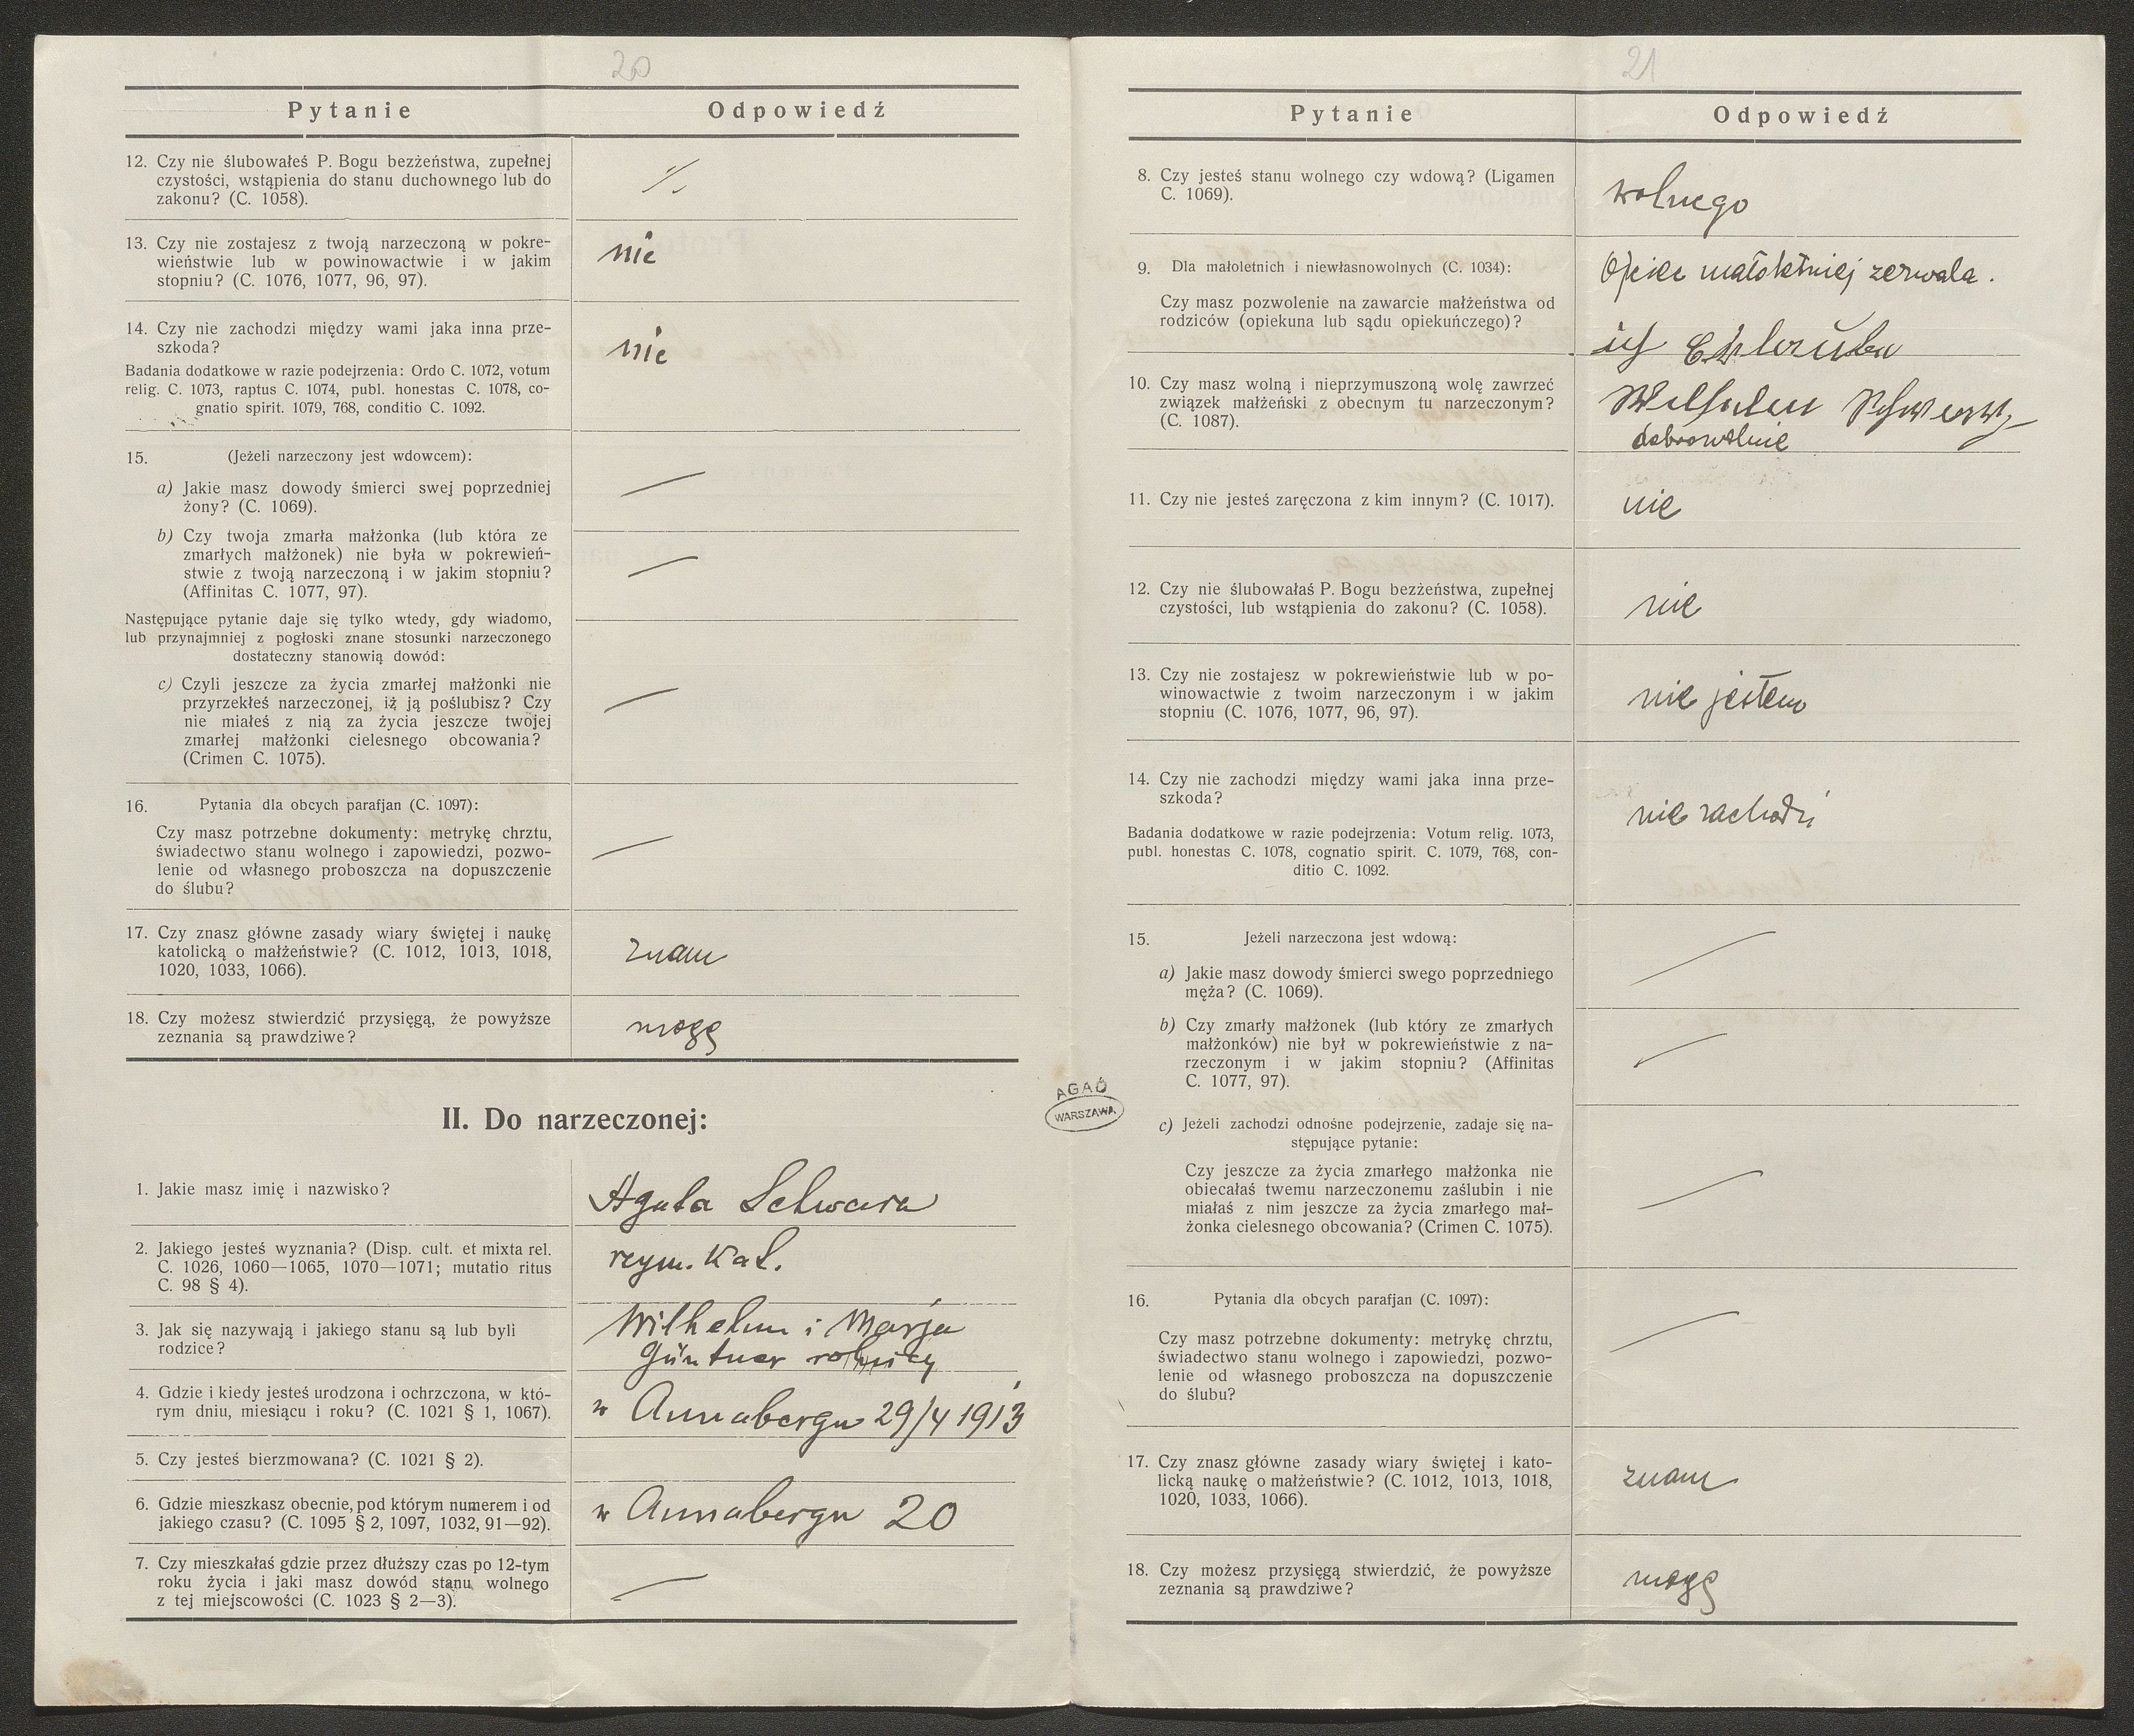 20
Pytanie Odpowiedź
12. Czy nie ślubowałeś P. Bogu bezżeństwa, zupełnej
czystości, wstąpienia do stanu duchownego lub do
zakonu? (C. 1058).
13. Czy nie zostajesz z twoją narzeczoną w pokre-
wieństwie lub w powinowactwie i w jakim
stopniu? (C. 1076, 1077, 96, 97).
nie
14. Czy nie zachodzi między wami jaka inna prze-
szkoda?
nie
Badania dodatkowe w razie podejrzenia: Ordo C. 1072, votum
relig. C. 1073, raptus C. 1074, publ. honestas C. 1078, co-
gnatio spirit. 1079, 768, conditio C. 1092.
15. (Jeżeli narzeczony jest wdowcem):
a) Jakie masz dowody śmierci swej poprzedniej
żony? (C. 1069).
b) Czy twoja zmarła małżonka (lub która ze
zmarłych małżonek) nie była w pokrewień-
stwie z twoją narzeczoną i w jakim stopniu?
(Affinitas C. 1077, 97).
Następujące pytanie daje się tylko wtedy, gdy wiadomo,
lub przynajmniej z pogłoski znane stosunki narzeczonego
dostateczny stanowią dowód:
c) Czyli jeszcze za życia zmarłej małżonki nie
przyrzekłeś narzeczonej, iż ją poślubisz? Czy
nie miałeś z nią za życia jeszcze twojej
zmarłej małżonki cielesnego obcowania?
(Crimen C. 1075).
16. Pytania dla obcych parafjan (C. 1097):
Czy masz potrzebne dokumenty: metrykę chrztu,
świadectwo stanu wolnego i zapowiedzi, pozwo-
lenie od własnego proboszcza na dopuszczenie
do ślubu?
17. Czy znasz główne zasady wiary świętej i naukę
katolicką o małżeństwie? (C. 1012, 1013, 1018,
1020, 1033, 1066).
znam
18. Czy możesz stwierdzić przysięgą, że powyższe
zeznania są prawdziwe?
mogę
II. Do narzeczonej:
1. Jakie masz imię i nazwisko?
Agata Schwarz
2. Jakiego jesteś wyznania? (Disp. cult. et mixta rel.
C. 1026, 1060—1065, 1070—1071; mutatio ritus
C. 98 § 4).
rzym. kat.
3. Jak się nazywają i jakiego stanu są lub byli
rodzice?
Wilhelm i Marja
Güntner rolnicy
4. Gdzie i kiedy jesteś urodzona i ochrzczona, w któ-
rym dniu, miesiącu i roku? (C. 1021 § 1, 1067).
w Annabergu 29/4 1913
5. Czy jesteś bierzmowana? (C. 1021 § 2).
6. Gdzie mieszkasz obecnie, pod którym numerem i od
jakiego czasu? (C. 1095 § 2, 1097, 1032, 91—92).
w Annabergu 20
7. Czy mieszkałaś gdzie przez dłuższy czas po 12-tym
roku życia i jaki masz dowód stanu wolnego
z tej miejscowości (C. 1023 § 2—3).
AGAD
WARSZAWA
21
Pytanie Odpowiedź
8. Czy jesteś stanu wolnego czy wdową? (Ligamen
C. 1069).
wolnego
9. Dla małoletnich i niewłasnowolnych (C. 1034):
Czy masz pozwolenie na zawarcie małżeństwa od
rodziców (opiekuna lub sądu opiekuńczego)?
małoletniej zezwala.
10. Czy masz wolną i nieprzymuszoną wolę zawrzeć
związek małżeński z obecnym tu narzeczonym?
(C. 1087).
dobrowolnie
11. Czy nie jesteś zaręczona z kim innym? (C. 1017).
nie
12. Czy nie ślubowałaś P. Bogu bezżeństwa, zupełnej
czystości, lub wstąpienia do zakonu? (C. 1058).
nie
13. Czy nie zostajesz w pokrewieństwie lub w po-
winowactwie z twoim narzeczonym i w jakim
stopniu (C. 1076, 1077, 96, 97).
nie jestem
14. Czy nie zachodzi między wami jaka inna prze-
szkoda?
nie zachodzi
Badania dodatkowe w razie podejrzenia: Votum relig. 1073,
publ. honestas C. 1078, cognatio spirit. C. 1079, 768, con-
ditio C. 1092.
15. Jeżeli narzeczona jest wdową:
a) Jakie masz dowody śmierci swego poprzedniego
męża? (C. 1069).
b) Czy zmarły małżonek (lub który ze zmarłych
małżonków) nie był w pokrewieństwie z na-
rzeczonym i w jakim stopniu? (Affinitas
C. 1077, 97).
c) Jeżeli zachodzi odnośne podejrzenie, zadaje się na-
stępujące pytanie:
Czy jeszcze za życia zmarłego małżonka nie
obiecałaś twemu narzeczonemu zaślubin i nie
miałaś z nim jeszcze za życia zmarłego mał-
żonka cielesnego obcowania? (Crimen C. 1075).
16. Pytania dla obcych parafjan (C. 1097):
Czy masz potrzebne dokumenty: metrykę chrztu,
świadectwo stanu wolnego i zapowiedzi, pozwo-
lenie od własnego proboszcza na dopuszczenie
do ślubu?
17. Czy znasz główne zasady wiary świętej i kato-
licką naukę o małżeństwie? (C. 1012, 1013, 1018,
1020, 1033, 1066).
znam
18. Czy możesz przysięgą stwierdzić, że powyższe
zeznania są prawdziwe?
mogę